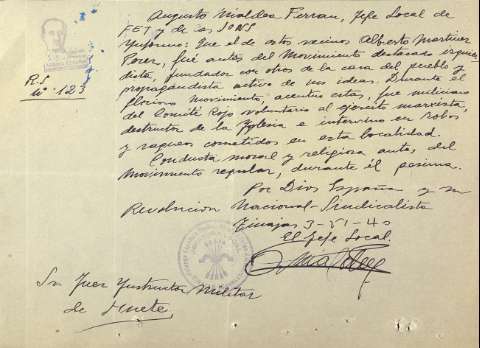 Augusto Maldea Ferran, Jefe Local de
FET y de las JONS
Informo: Que el de estos vecinos Alberto Martinez
Perez, fué antes del Movimiento destacado izquier
dista, fundador con otros de la casa del pueblo y
propagandista activo de sus ideas. Durante el
glorioso Movimiento, acentua estas, fue miliciano
del Comité Rojo voluntario al ejercito marxista,
destructor de la Iglesia e intervino en robos
y saqueos cometidos en esta localidad.
Conducta moral y religiosa antes del
Movimiento regular, durante él pesima.
Por Dios España y su
Revolucion Nacional-Sindicalista
Tinajas 3-VI-40
El Jefe Local.
R.S
nº 123
Sr Juez Instructor Militar
de Huete